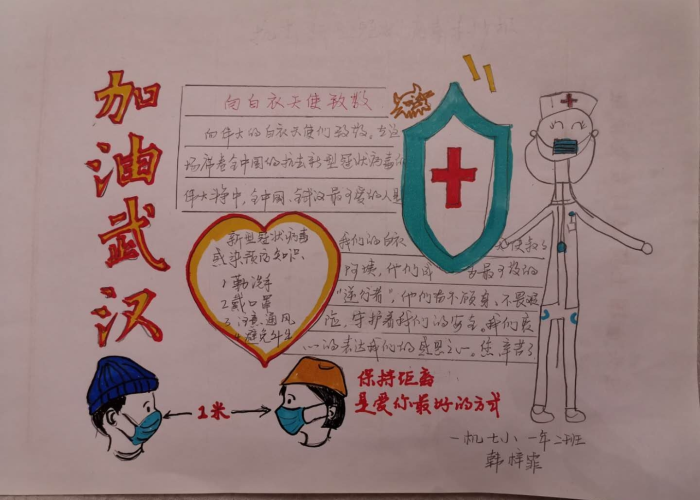 加油武汉
向白衣天使致敬
向伟大的白衣天使们致敬。在这
场席卷全中国的抗击新型冠状病毒的
伟大斗争中,全中国、全武汉最可爱的人是
我们的白衣
使叔叔
阿姨,他们成
最可敬的
“逆行者”,他们奋不顾身、不畏艰
险,守护着我们的安全。我们衷
心的表达我们的感恩之心。您辛苦了
新型冠状病毒
感染预防知识、
1 勤洗手
2 戴口罩
3 注意通风
4 避免外出
1米
保持距离
是爱你最好的方式
一机七小 一年二班
韩梓霏